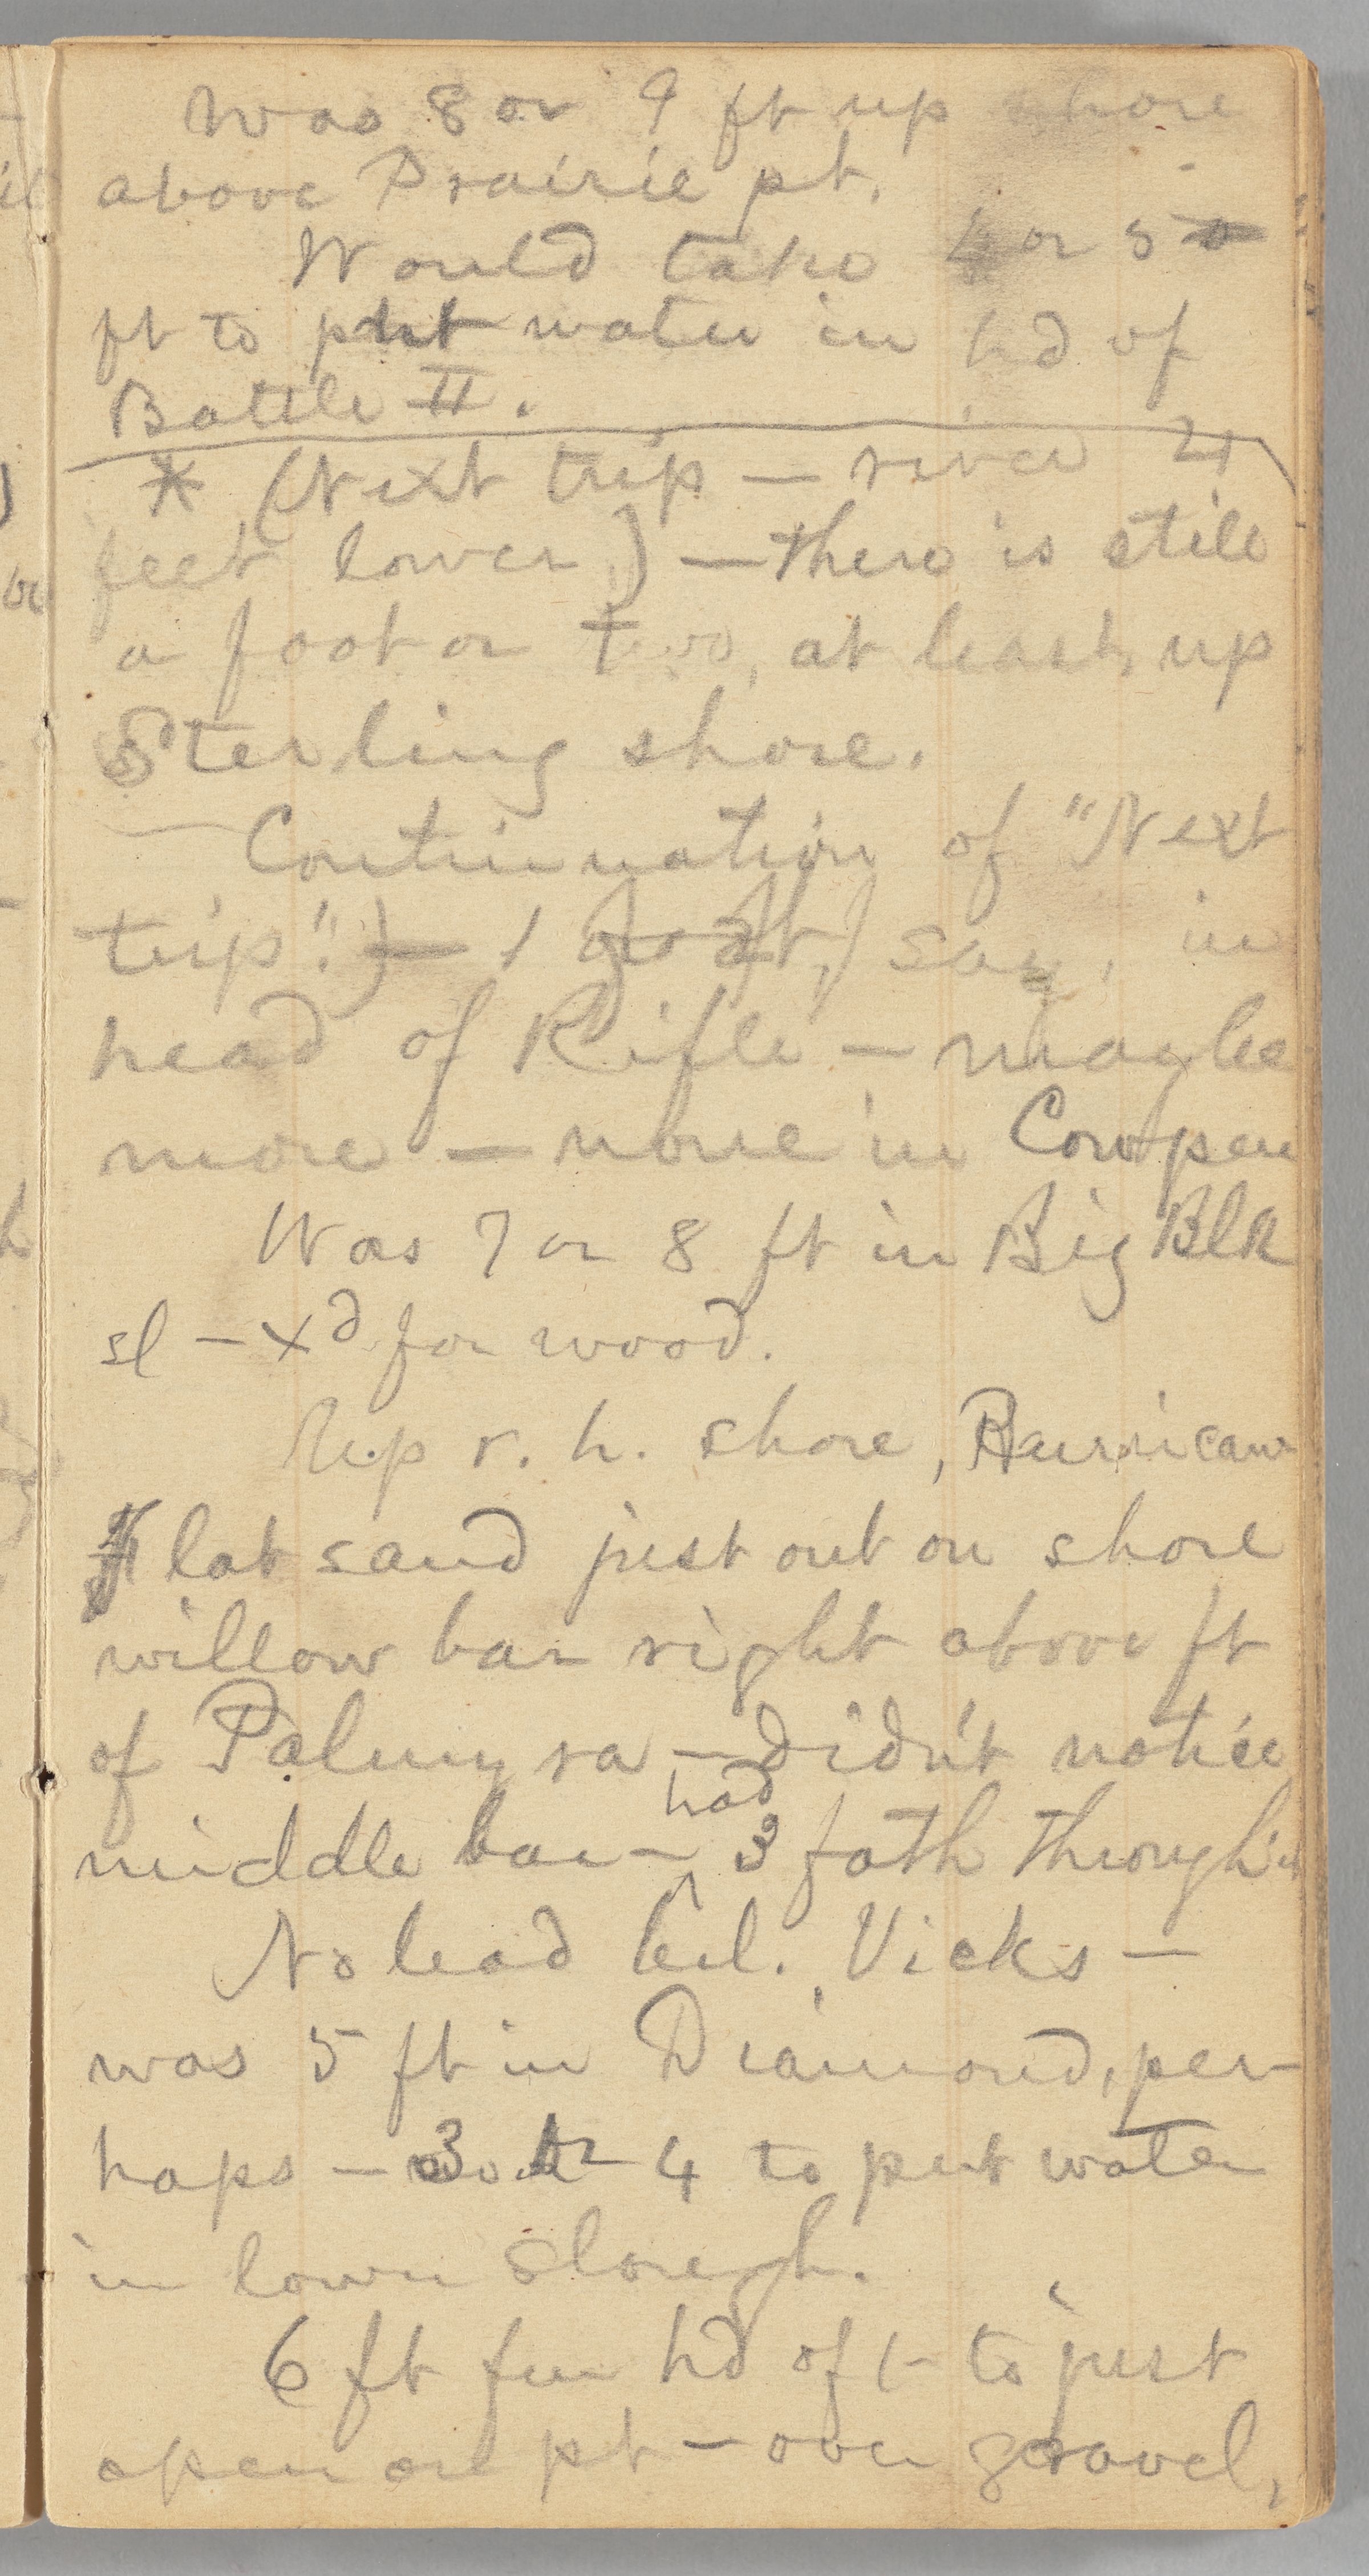 Was 8 or 9 ft up shore
above Prairie pt.
Would take 4 or 5
ft to put water in hd of
Battle II.
* (Next trip — river 4
feet lower) — there is still
a foot or two, at least, up
Sterling shore.
Continuation of "Next
trip".) — 1 foot, say, in
head of Rifle — maybe
more — none in Cowpen
Was 7 or 8 ft in Big Blk
sl — xd for wood.
Up r. h. shore, Hurricane
flat sand just out on shore
willow bar right above ft
of Palmyra — didn't notice
middle bar — had 3 fath through it
No lead bel. Vicks —
was 5 ft in Diamond, per-
haps — 3 or 4 to put water
in lower slough.
6 ft fm hd of 1- to just
open on pt — over gravel,